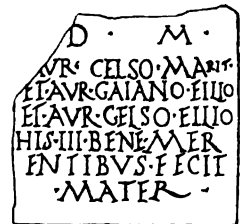 D · M ·
AVR · CELSO · MARIT ·
ET · AVR · GAIANO · FILIO
ET · AVR · CELSO · FILIO
HIS · III · BENE · MER
ENTIBVS · FECIT
· MATER ·